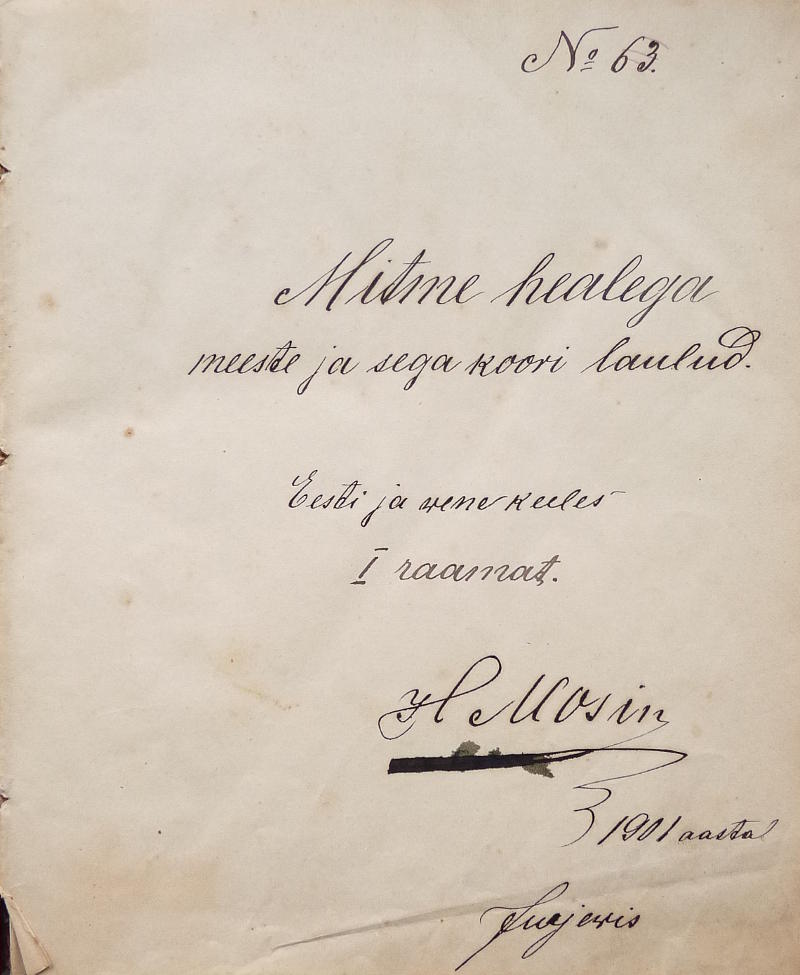 No 63.
Mitme healega
meeste ja sega koori laulud.
Eesti ja wene keeles
I raamat.
H Mosin
1901 aastal
Jurjewis